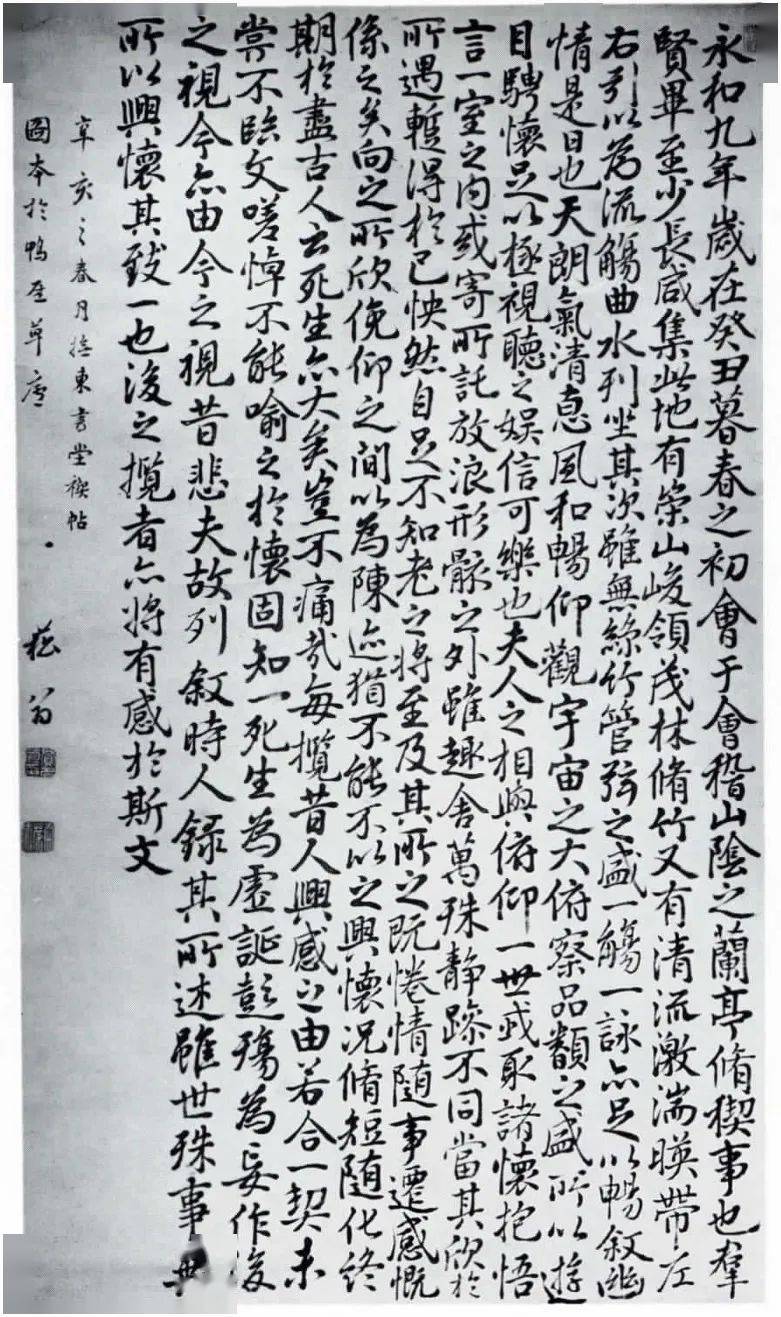 永和九年歲在癸丑暮春之初會于會稽山陰之蘭亭脩稧事也羣
賢畢至少長咸集此地有崇山峻領茂林脩竹又有清流激湍暎帶左
右引以為流觴曲水列坐其次雖無絲竹管弦之盛一觴一詠亦足以暢敘幽
情是日也天朗氣清惠風和暢仰觀宇宙之大俯察品類之盛所以遊
目騁懷足以極視聽之娛信可樂也夫人之相與俯仰一世或取諸懷抱悟
言一室之內或寄所託放浪形骸之外雖趣舍萬殊靜躁不同當其欣於
所遇蹔得於己怏然自足不知老之將至及其所之既惓情隨事遷感慨
係之矣向之所欣俛仰之間以為陳迹猶不能不以之興懷況脩短隨化終
期於盡古人云死生亦大矣豈不痛哉每攬昔人興感之由若合一契未
嘗不臨文嗟悼不能喻之於懷固知一死生為虛誕彭殤為妄作後
之視今亦由今之視昔悲夫故列敘時人錄其所述雖世殊事
所以興懷其致一也後之攬者亦將有感於斯文
辛亥之春月東書堂稧帖
圖本於鴨草廬
翁